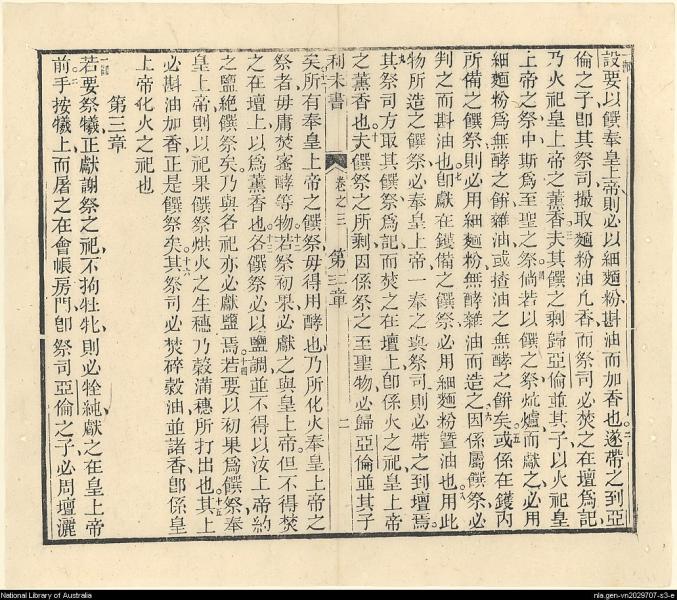 設要以饌奉皇上帝則必以細麵粉斟油而加香也遂帶之到亞
倫之子卽其祭司撮取麵粉油凢香而祭司必焚之在壇爲記
乃火祀皇上帝之薰香夫其饌之剩歸亞倫並其子以火祀皇
上帝之祭中斯爲至聖之祭倘若以饌之祭炕爐而獻之必用
細麵粉爲無酵之餅雜油或揸油之無酵之餅矣或係在鑊內
所備之饌祭則必用細麵粉無酵雜油而造之因係屬饌祭必
判之而斟油也卽獻在鑊備之饌祭必用細麵粉曁油也用此
物所造之饌祭必奉皇上帝一奉之與祭司則必帶之到壇焉
其祭司方取其饌祭爲記而焚之在壇上卽係火之祀皇上帝
之薰香也夫饌祭之所剩因係祭之至聖物必歸亞倫並其子
利未書 卷之三 第二章 二
矣所有奉皇上帝之饌祭毋得用酵也乃所化火奉皇上帝之
祭者毋庸焚蜜酵等物若祭初果必獻之與皇上帝但不得焚
之在壇上以爲薰香也各饌祭必以鹽調並不得以汝上帝約
之鹽絶饌祭矣乃與各祀亦必獻鹽焉若要以初果爲饌祭奉
皇上帝則以祀果饌祭烘火之生穗乃穀滿穗所打出也其上
必斟油加香正是饌祭矣其祭司必焚碎穀油並諸香卽係皇
上帝化火之祀也
第三章
若要祭犧正獻謝祭之祀不拘牡牝則必牷純獻之在皇上帝
前手按犧上而屠之在會帳房門卽祭司亞倫之子必周壇灑
National Library of Australia
nla.gen-vn2029707-s3-e